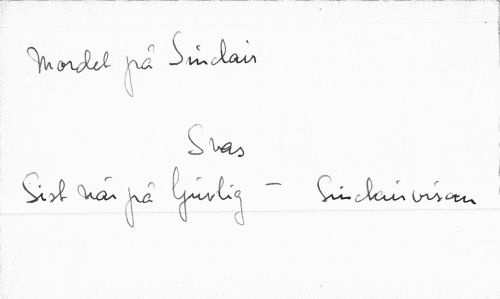 Mordet på Sinclair
Svas
Sist när på ljuvlig – Sinclairvisan